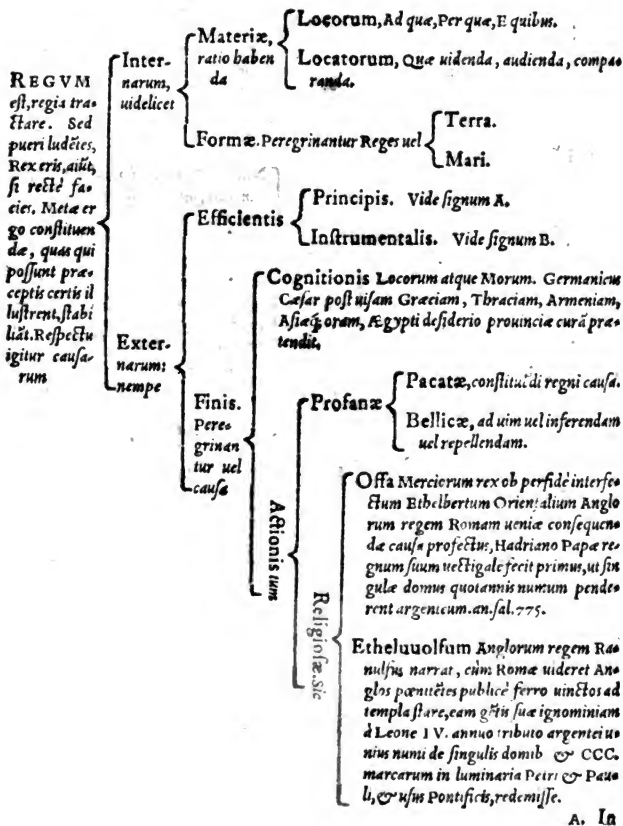 REGVM
est, regia tra-
ctare. Sed
pueri ludẽtes,
Rex eris, aiũt,
si rectè fa-
cies. Metæ er
go constituen
dæ, quas qui
possunt præ-
ceptis certis il
lustrent, stabi
liãt. Respectu
igitur causa-
rum
Inter-
narum,
uidelicet
Materiæ,
ratio haben
da
Locorum, Ad quæ, Per quæ, E quibus.
Locatorum, Quæ uidenda, audienda, compa-
randa.
Formæ. Peregrinantur Reges uel
Terra.
Mari.
Exter-
narum:
nempe
Efficientis
Principis. Vide signum A.
Instrumentalis. Vide signum B.
Finis.
Pere-
grinan
tur uel
causa
Cognitionis Locorum atque Morum. Germanicus
Cæsar post uisam Græciam, Thraciam, Armeniam,
Asiæq; oram, Ægypti desiderio prouinciæ curã præ-
tendit.
Actionis tum
Profanæ
Pacatæ, constituẽdi regni causa.
Bellicæ, ad uim uel inferendam
uel repellendam.
Religiosæ. Sic
Offa Merciorum rex ob perfidè interfe-
ctum Ethelbertum Orientalium Anglo
rum regem Romam ueniæ consequen-
dæ causa profectus, Hadriano Papæ re-
gnum suum uectigale fecit primus, ut sin
gulæ domus quotannis numum pende-
rent argenteum. an. sal. 775.
Etheluuolfum Anglorum regem Ra-
nulfus narrat, cùm Romæ uideret An-
glos pœnitẽtes publicè ferro uinctos ad
templa stare, eam gẽtis suæ ignominiam
à Leone IV. annuo tributo argentei u-
nius numi de singulis domib & CCC.
marcarum in luminaria Petri & Pau-
li, & usus Pontificis, redemisse.
A. In